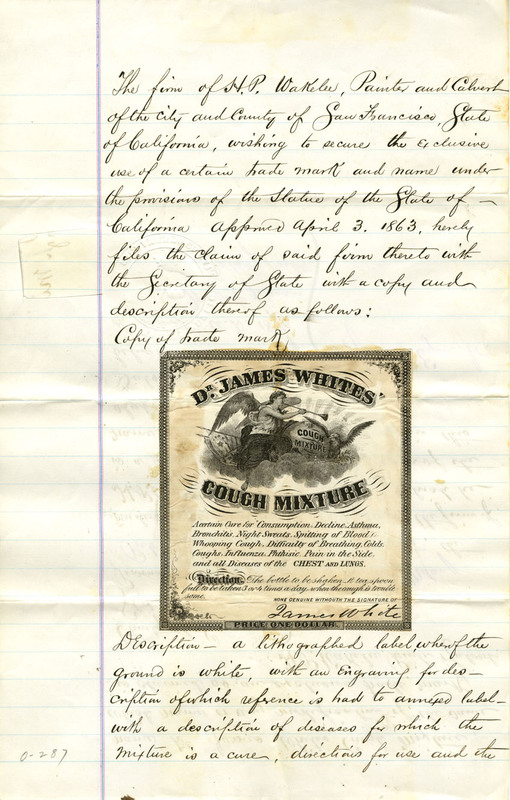 The firm of H.P. Wakelee, Painter and Calvert
of the City and County of San Francisco, State
of California, wishing to secure the exclusive
use of a certain trade mark and name under
the provisions of the Statue of the State of —
California Approved April 3. 1863, hereby
files the claim of said firm thereto with
the Secretary of State with a copy and
description thereof as follows:
Copy of trade mark
DR. JAMES WHITES'
COUGH
MIXTURE
COUGH MIXTURE
A certain Cure for Consumption, Decline, Asthma,
Bronchitis, Night Sweats, Spitting of Blood,
Whooping Cough, Difficulty of Breathing, Colds,
Coughs, Influenza, Phthisic, Pain in the Side,
and all Diseases of the CHEST AND LUNGS.
Direction. The bottle to be shaken. A tea spoon
full to be taken 3 or 4 times a day, when the cough is trouble
some.
NONE GENUINE WITHOUTH THE SIGNATURE OF
James White
PRICE ONE DOLLAR.
Description — a lithographed label, whereof the
ground is white, with an Engraving for des-
cription of which reference is had to annexed label—
with a description of diseases for which the
Mixture is a cure, directions for use and the
0-287